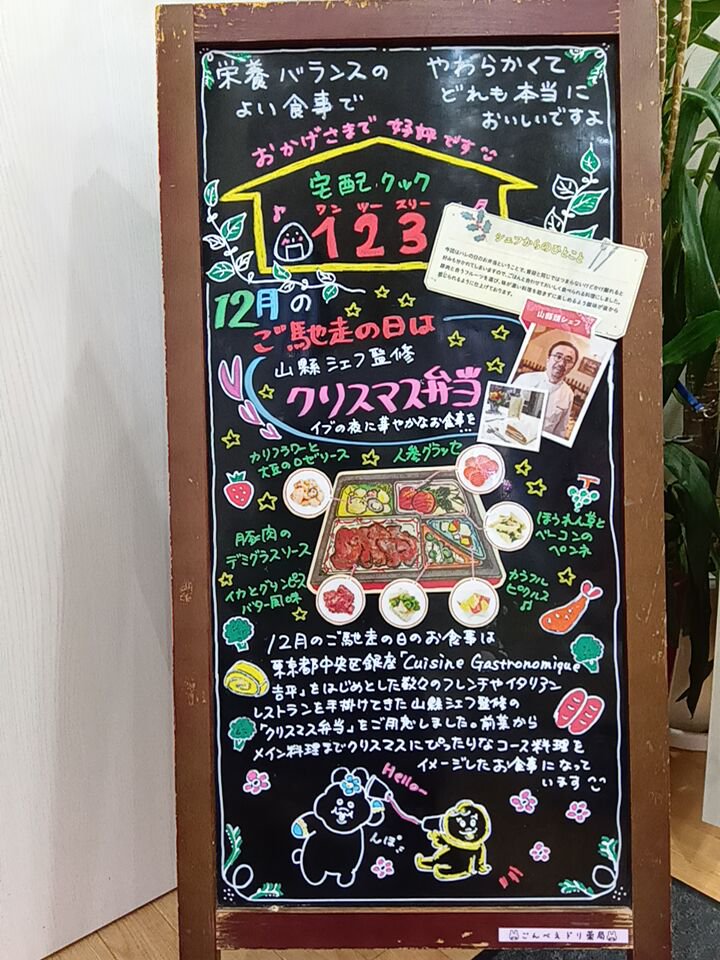 栄養バランスの
よい食事で
やわらかくて
どれも本当に
おいしいですよ
おかげさまで 好評です
宅配クック
ワン ツー スリー
123
シェフからのひとこと
山縣類シェフ
12月の
ご馳走の日は
山縣シェフ監修
クリスマス弁当
イブの夜に華やかなお食事を…
カリフラワーと
大豆のロゼソース
人参グラッセ
豚肉の
デミグラスソース
ほうれん草と
ベーコンの
ペンネ
イカとグリンピス
バター風味
カラフル
ピクルス
12月のご馳走の日のお食事は
東京都中央区銀座「Cuisine Gastronomique
吉平」をはじめとした数々のフレンチやイタリアン
レストランを手掛けてきた山縣シェフ監修の
「クリスマス弁当」をご用意しました。前菜から
メイン料理までクリスマスにぴったりなコース料理を
イメージしたお食事になって
います
Hello
んぽ
ごんべえドリ薬局